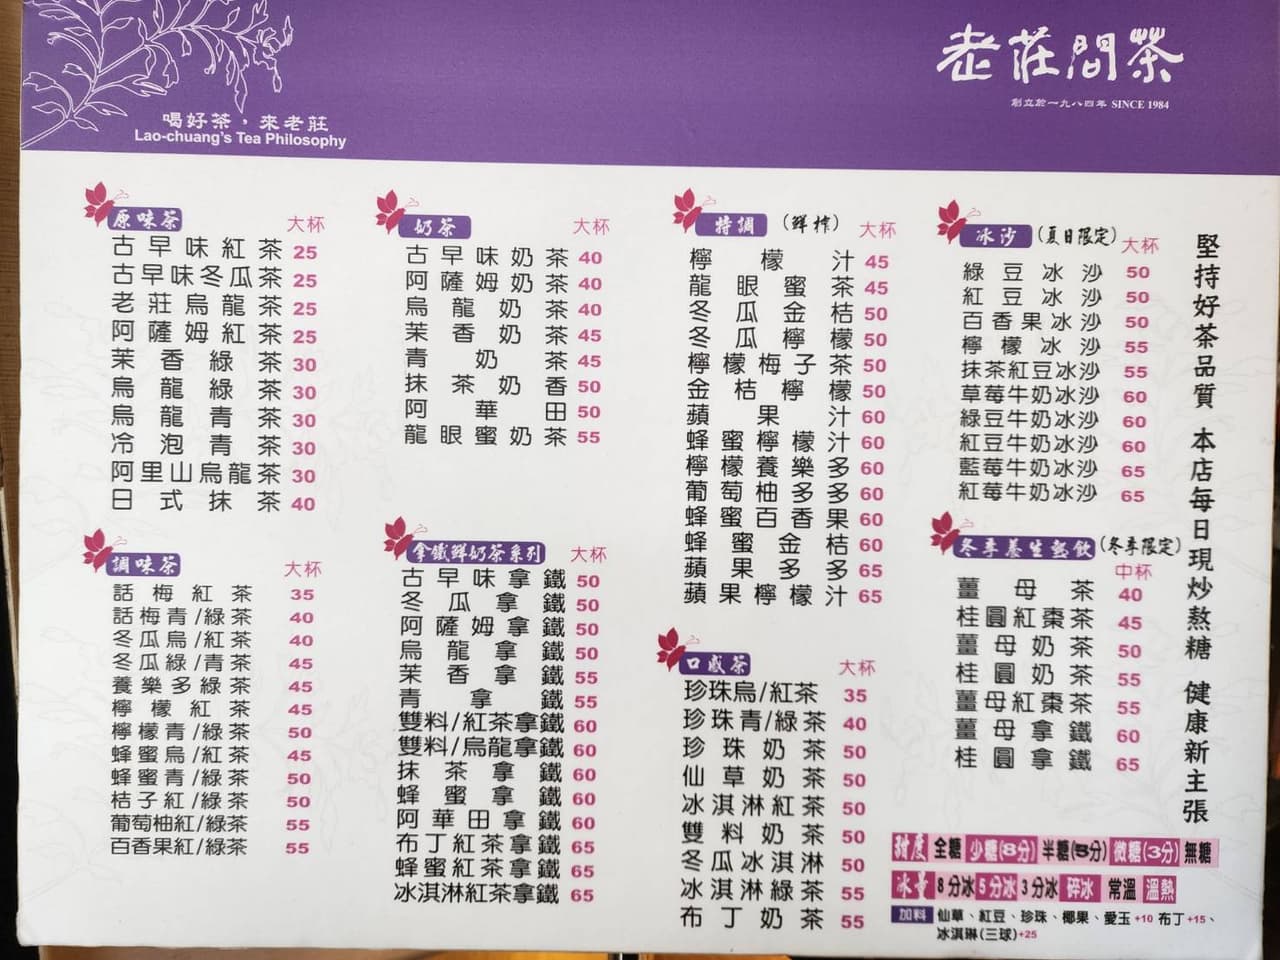 喝好茶，來老莊
Lao-chuang's Tea Philosophy
老莊問茶
創立於一九八四年 SINCE 1984
原味茶 大杯
古早味紅茶 25
古早味冬瓜茶 25
老莊烏龍茶 25
阿薩姆紅茶 25
茉香綠茶 30
烏龍綠茶 30
烏龍青茶 30
冷泡青茶 30
阿里山烏龍茶 30
日式抹茶 40
調味茶 大杯
話梅紅茶 35
話梅青/綠茶 40
冬瓜烏/紅茶 40
冬瓜綠/青茶 45
養樂多綠茶 45
檸檬紅茶 45
檸檬青/綠茶 50
蜂蜜烏/紅茶 45
蜂蜜青/綠茶 50
桔子紅/綠茶 50
葡萄柚紅/綠茶 55
百香果紅/綠茶 55
奶茶 大杯
古早味奶茶 40
阿薩姆奶茶 40
烏龍奶茶 40
茉香奶茶 45
青奶茶 45
抹茶奶香 50
阿華田 50
龍眼蜜奶茶 55
拿鐵鮮奶茶系列 大杯
古早味拿鐵 50
冬瓜拿鐵 50
阿薩姆拿鐵 50
烏龍拿鐵 50
茉香拿鐵 55
青拿鐵 55
雙料/紅茶拿鐵 60
雙料/烏龍拿鐵 60
抹茶拿鐵 60
蜂蜜拿鐵 60
阿華田拿鐵 60
布丁紅茶拿鐵 65
蜂蜜紅茶拿鐵 65
冰淇淋紅茶拿鐵 65
特調 (鮮榨) 大杯
檸檬汁 45
龍眼蜜茶 45
冬瓜金桔 50
冬瓜檸檬 50
檸檬梅子茶 50
金桔檸檬 50
蘋果汁 60
蜂蜜檸檬汁 60
檸檬養樂多 60
葡萄柚多多 60
蜂蜜百香果 60
蜂蜜金桔 60
蘋果多多 65
蘋果檸檬汁 65
口感茶 大杯
珍珠烏/紅茶 35
珍珠青/綠茶 40
珍珠奶茶 50
仙草奶茶 50
冰淇淋紅茶 50
雙料奶茶 50
冬瓜冰淇淋 50
冰淇淋綠茶 55
布丁奶茶 55
冰沙 (夏日限定) 大杯
綠豆冰沙 50
紅豆冰沙 50
百香果冰沙 50
檸檬冰沙 55
抹茶紅豆冰沙 55
草莓牛奶冰沙 60
綠豆牛奶冰沙 60
紅豆牛奶冰沙 60
藍莓牛奶冰沙 65
紅莓牛奶冰沙 65
冬季養生熱飲 (冬季限定)
中杯
薑母茶 40
桂圓紅棗茶 45
薑母奶茶 50
桂圓奶茶 55
薑母紅棗茶 55
薑母拿鐵 60
桂圓拿鐵 65
堅持好茶品質 本店每日現炒熬糖 健康新主張
甜度 全糖 少糖(8分) 半糖(5分) 微糖(3分) 無糖
冰量 8分冰 5分冰 3分冰 碎冰 常溫 溫熱
加料 仙草、紅豆、珍珠、椰果、愛玉+10 布丁+15、
冰淇琳(三球)+25